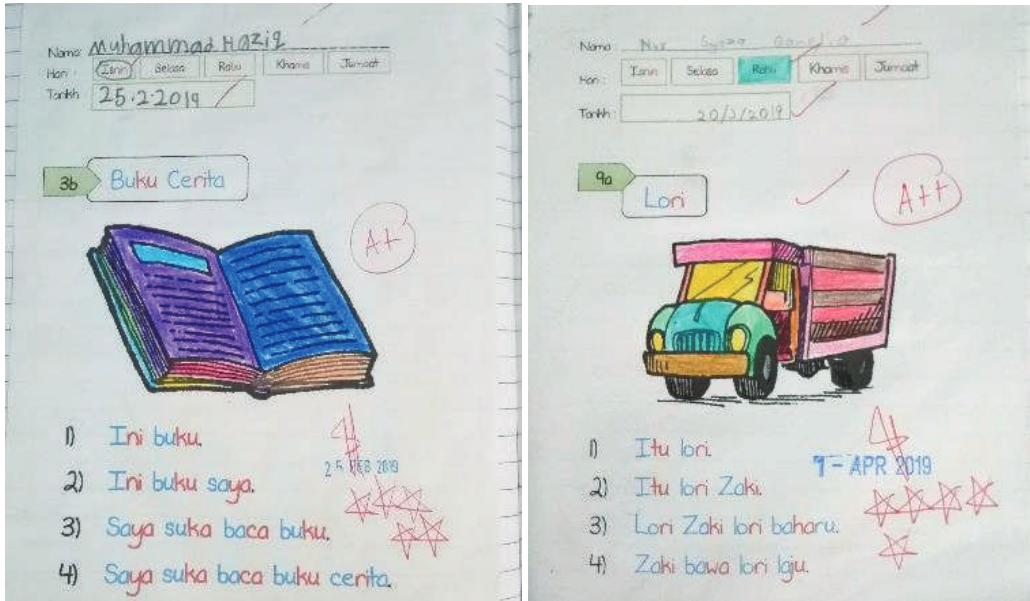 Nama: Muhammad Haziq
Hari: Isnin Selasa Rabu Khamis Jumaat
Tarikh: 25.2.2019
3b Buku Cerita
A+
1) Ini buku.
25 FEB 2019
2) Ini buku saya.
3) Saya suka baca buku.
4) Saya suka baca buku cerita.
Nama: Nur
Hari: Isnin Selasa Rabu Khamis Jumaat
Tarikh: 20/3/2019
9a Lori
A++
1) Itu lori.
1 - APR 2019
2) Itu lori Zaki.
3) Lori Zaki lori baharu.
4) Zaki bawa lori laju.